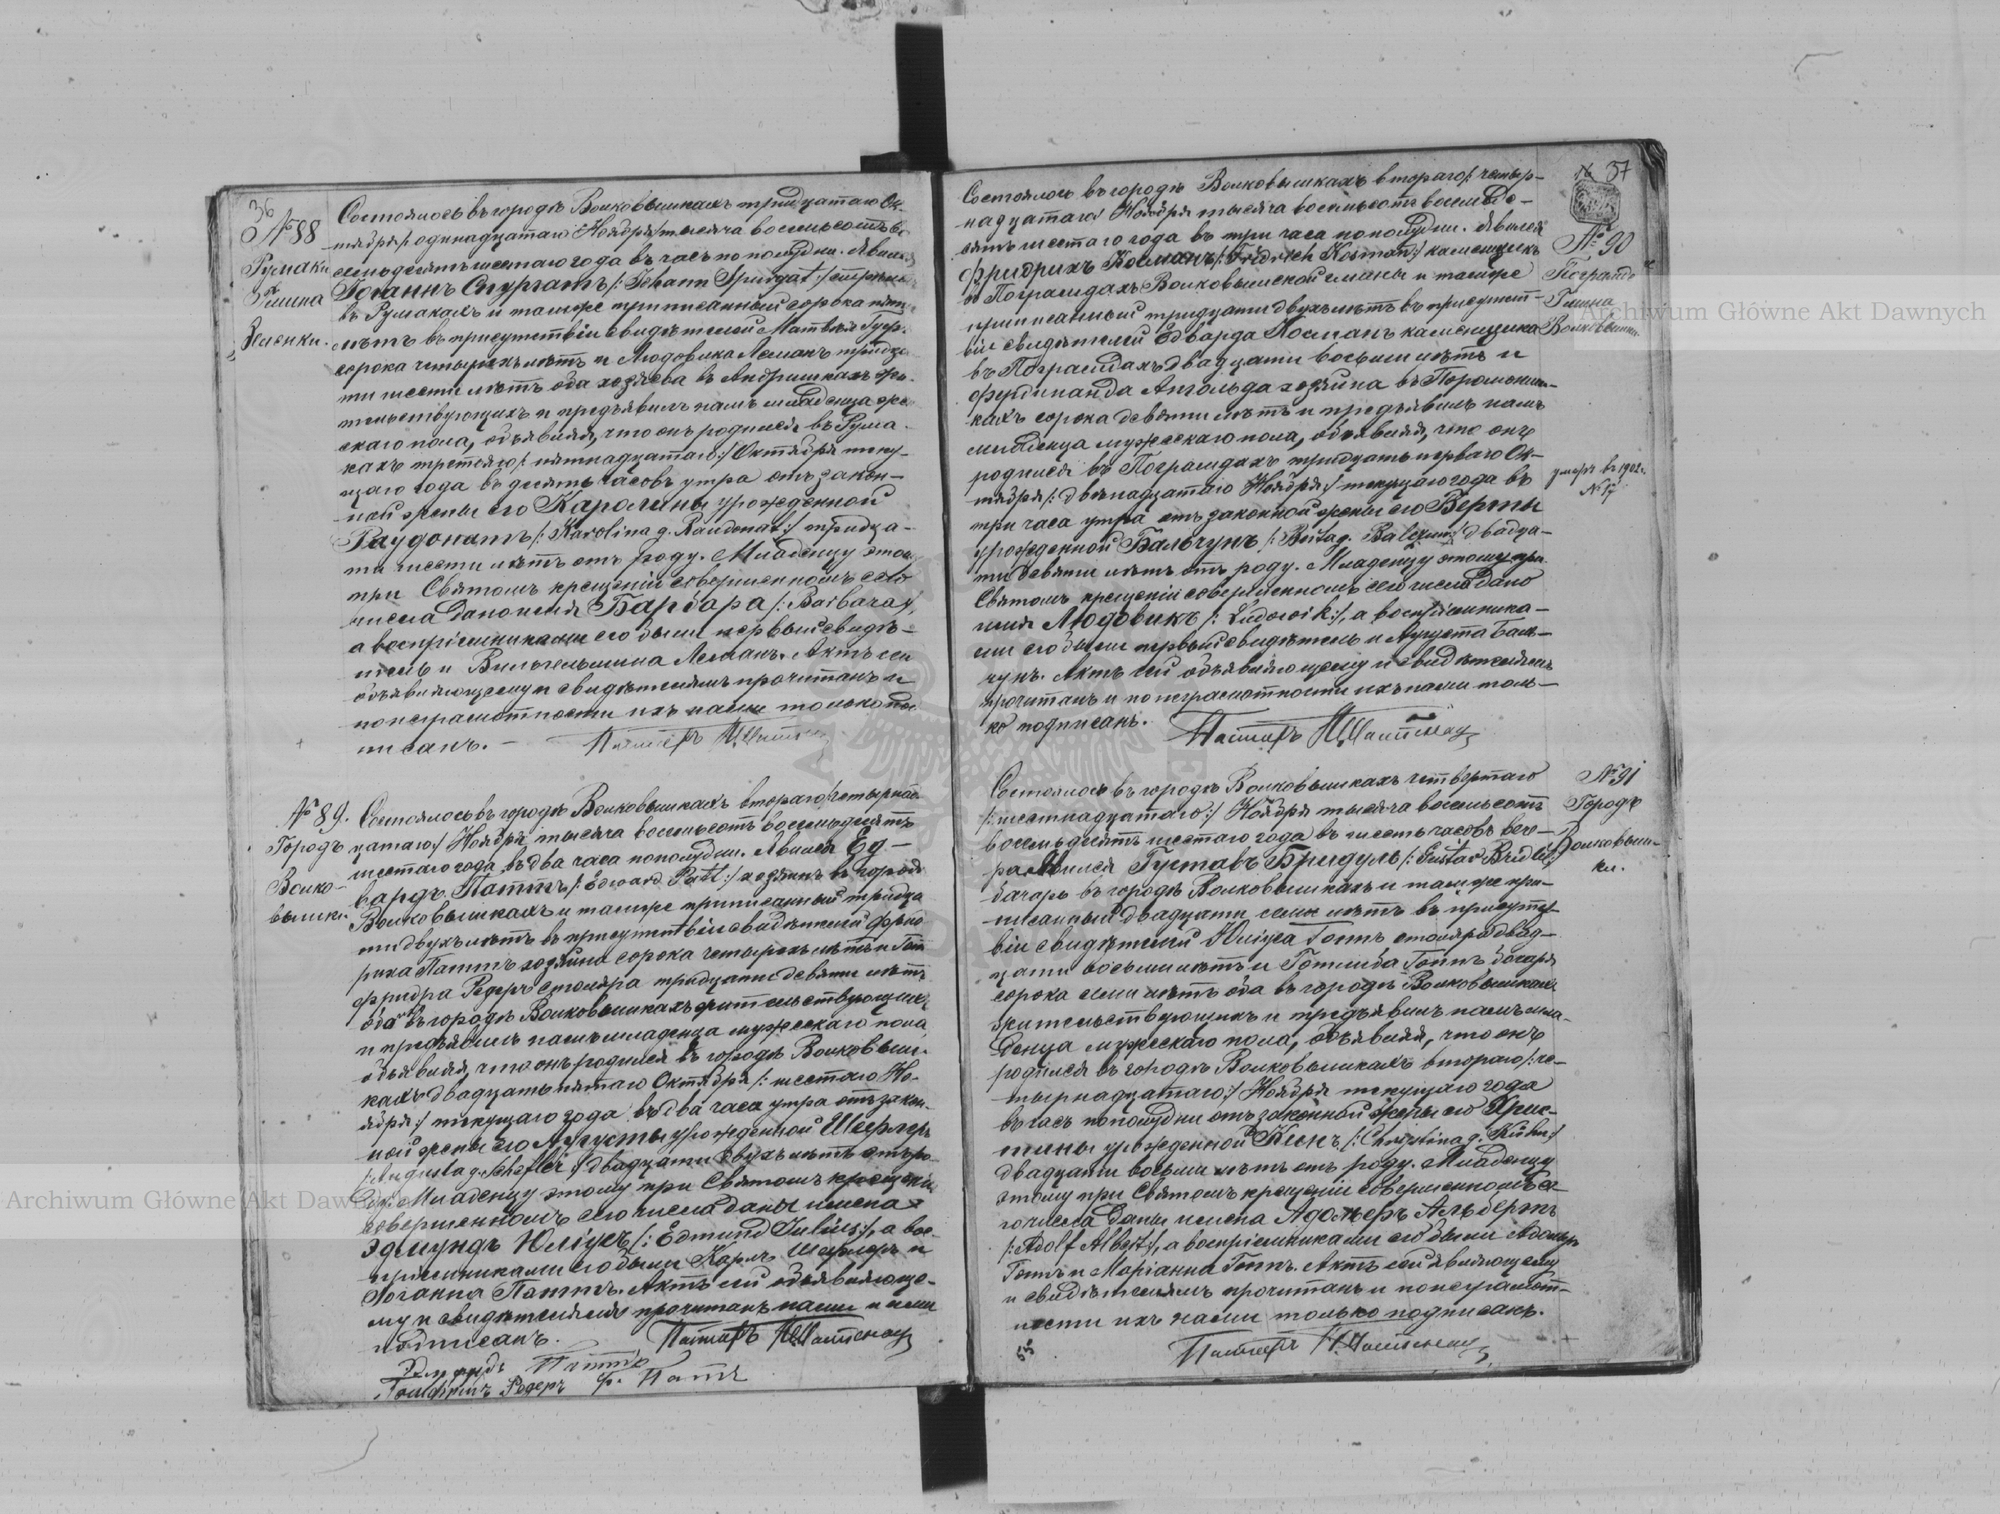 36
№ 88
Румаки
Гмина
Зеленки.
Состоялось въ городѣ Волковышкахъ тридцатаго Ок-
тября /: одинадцатаго Ноября тысяча восемьсотъ во-
семьдесятъ шестаго года въ часъ по полудни. Явился
Іоганнъ Спургатъ /: Johann Spurgat :/
въ Румакахъ и тамже приписанный сорока пяти
лѣтъ въ присутствіи свидѣтелей Матвѣя
сорока четырехъ лѣтъ и Людовика Леманъ тридца-
ти шести лѣтъ оба хозяева въ Андришкахъ жи-
тельствующихъ и предъявилъ намъ младенца жен-
скаго пола, объявляя, что онъ родился въ Рума-
кахъ третьяго /: пятнадцатаго :/ Октября теку-
щаго года въ десять часовъ утра отъ закон-
ной жены его Каролины урожденной
Раудонатъ /: Karolina g. Raudonat :/ тридца-
ти шести лѣтъ отъ роду. Младенцу этому
при Святомъ крещеніи совершенномъ сего
числа дано имя Барбара /: Barbara :/,
а воспріемниками его были первый свидѣ-
тель и Вильгельмина Леманъ. Актъ сей
объявляющему и свидѣтелямъ прочитанъ и
по неграмотности ихъ нами только под-
писанъ. — Пасторъ
№ 89.
Городъ
Волко-
вышки.
Состоялось въ городѣ Волковышкахъ втораго /: четырнад-
цатаго :/ Ноября тысяча восемьсотъ восемьдесятъ
шестаго года въ два часа по полудни. Явился Ед-
вардъ Паттъ /: Edward Patt :/ хозяинъ въ городѣ
Волковышкахъ и тамже приписанный тридца-
ти двухъ лѣтъ въ присутствіи свидѣтелей Фрид-
риха Паттъ хозяина сорока четырехъ лѣтъ и Гот-
фридра Редеръ столяра тридцати девяти лѣтъ
оба въ городѣ Волковышкахъ жительствующихъ
и предъявилъ намъ младенца мужескаго пола,
объявляя, что онъ родился въ городѣ Волковыш-
кахъ двадцать пятаго Октября /: шестаго Но-
ября :/ текущаго года въ два часа утра отъ закон-
ной жены его Августы урожденной Шефлеръ
/: Augusta g. Schefler :/ двадцати двухъ лѣтъ отъ ро-
ду. Младенцу этому при Святомъ крещеніи
совершенномъ сего числа даны имена
Эдмундъ Юліусъ /: Edmund Julius :/, а вос-
пріемниками его были Карлъ Шефлеръ и
Іоганна Паттъ. Актъ сей объявляюще-
му и свидѣтелямъ прочитанъ нами и ими
подписанъ. Пасторъ
Паттъ
Готфридъ Редеръ Ф. Патъ
37
№ 90
Гмина
Волковышки
умеръ въ 1902 г.
Состоялось въ городѣ Волковышкахъ втораго /: четыр-
надцатаго Ноября тысяча восемьсотъ восемьде-
сятъ шестаго года въ три часа по полудни. Явился
Фридрихъ Косманъ /: Fridrich Kosman :/ каменщикъ
въ Пограмдахъ Волковышской гмины и тамже
приписанный тридцати двухъ лѣтъ въ присутст-
віи свидѣтелей Эдварда Косманъ каменщика
въ Пограмдахъ двадцати восьми лѣтъ и
Фердинанда Ангольда хозяина въ
кахъ сорока девяти лѣтъ и предъявилъ намъ
младенца мужескаго пола, объявляя, что онъ
родился въ Пограмдахъ тридцать перваго Ок-
тября /: двѣнадцатаго Ноября :/ текущаго года въ
три часа утра отъ законной жены его Берты
урожденной Бальчунъ /: Berta g. Balczun :/ двадца-
ти девяти лѣтъ отъ роду. Младенцу этому при
Святомъ крещеніи совершенномъ сего числа дано
имя Людовикъ /: Ludowik :/, а воспріемника-
ми его были первый свидѣтель и Августа Баль-
чунъ. Актъ сей объявляющему и свидѣтелямъ
прочитанъ и по неграмотности ихъ нами толь-
ко подписанъ. Пасторъ
№ 91
Городъ
Волковыш-
ки.
Состоялось въ городѣ Волковышкахъ четвертаго
/: шестнадцатаго :/ Ноября тысяча восемьсотъ
восемьдесятъ шестаго года въ шесть часовъ вече-
ра явился Густавъ Бридуль /: Gustav Bridul :/
бочаръ въ городѣ Волковышкахъ и тамже при-
писанный двадцати семи лѣтъ въ присутст-
віи свидѣтелей Юлиуса Гоппъ столяра двад-
цати восьми лѣтъ и Готлиба Гоппъ бочара
сорока семи лѣтъ оба въ городѣ Волковышкахъ
жительствующихъ и предъявилъ намъ мла-
денца мужескаго пола, объявляя, что онъ
родился въ городѣ Волковышкахъ втораго /: че-
тырнадцатаго :/ Ноября текущаго года
въ часъ по полудни отъ законной жены его Хрис-
тины урожденной Кинъ /: Christina g. Kühn :/
двадцати восьми лѣтъ отъ роду. Младенцу
этому при Святомъ крещеніи совершенномъ се-
го числа даны имена Адольфъ Альбертъ
/: Adolf Albert :/, а воспріемниками его были Адольфъ
Гоппъ и Маріанна Гоппъ. Актъ сей являющему
и свидѣтелямъ прочитанъ и по неграмот-
ности ихъ нами только подписанъ.
Пасторъ
Archiwum Główne Akt Dawnych
Archiwum Główne Akt Dawnych